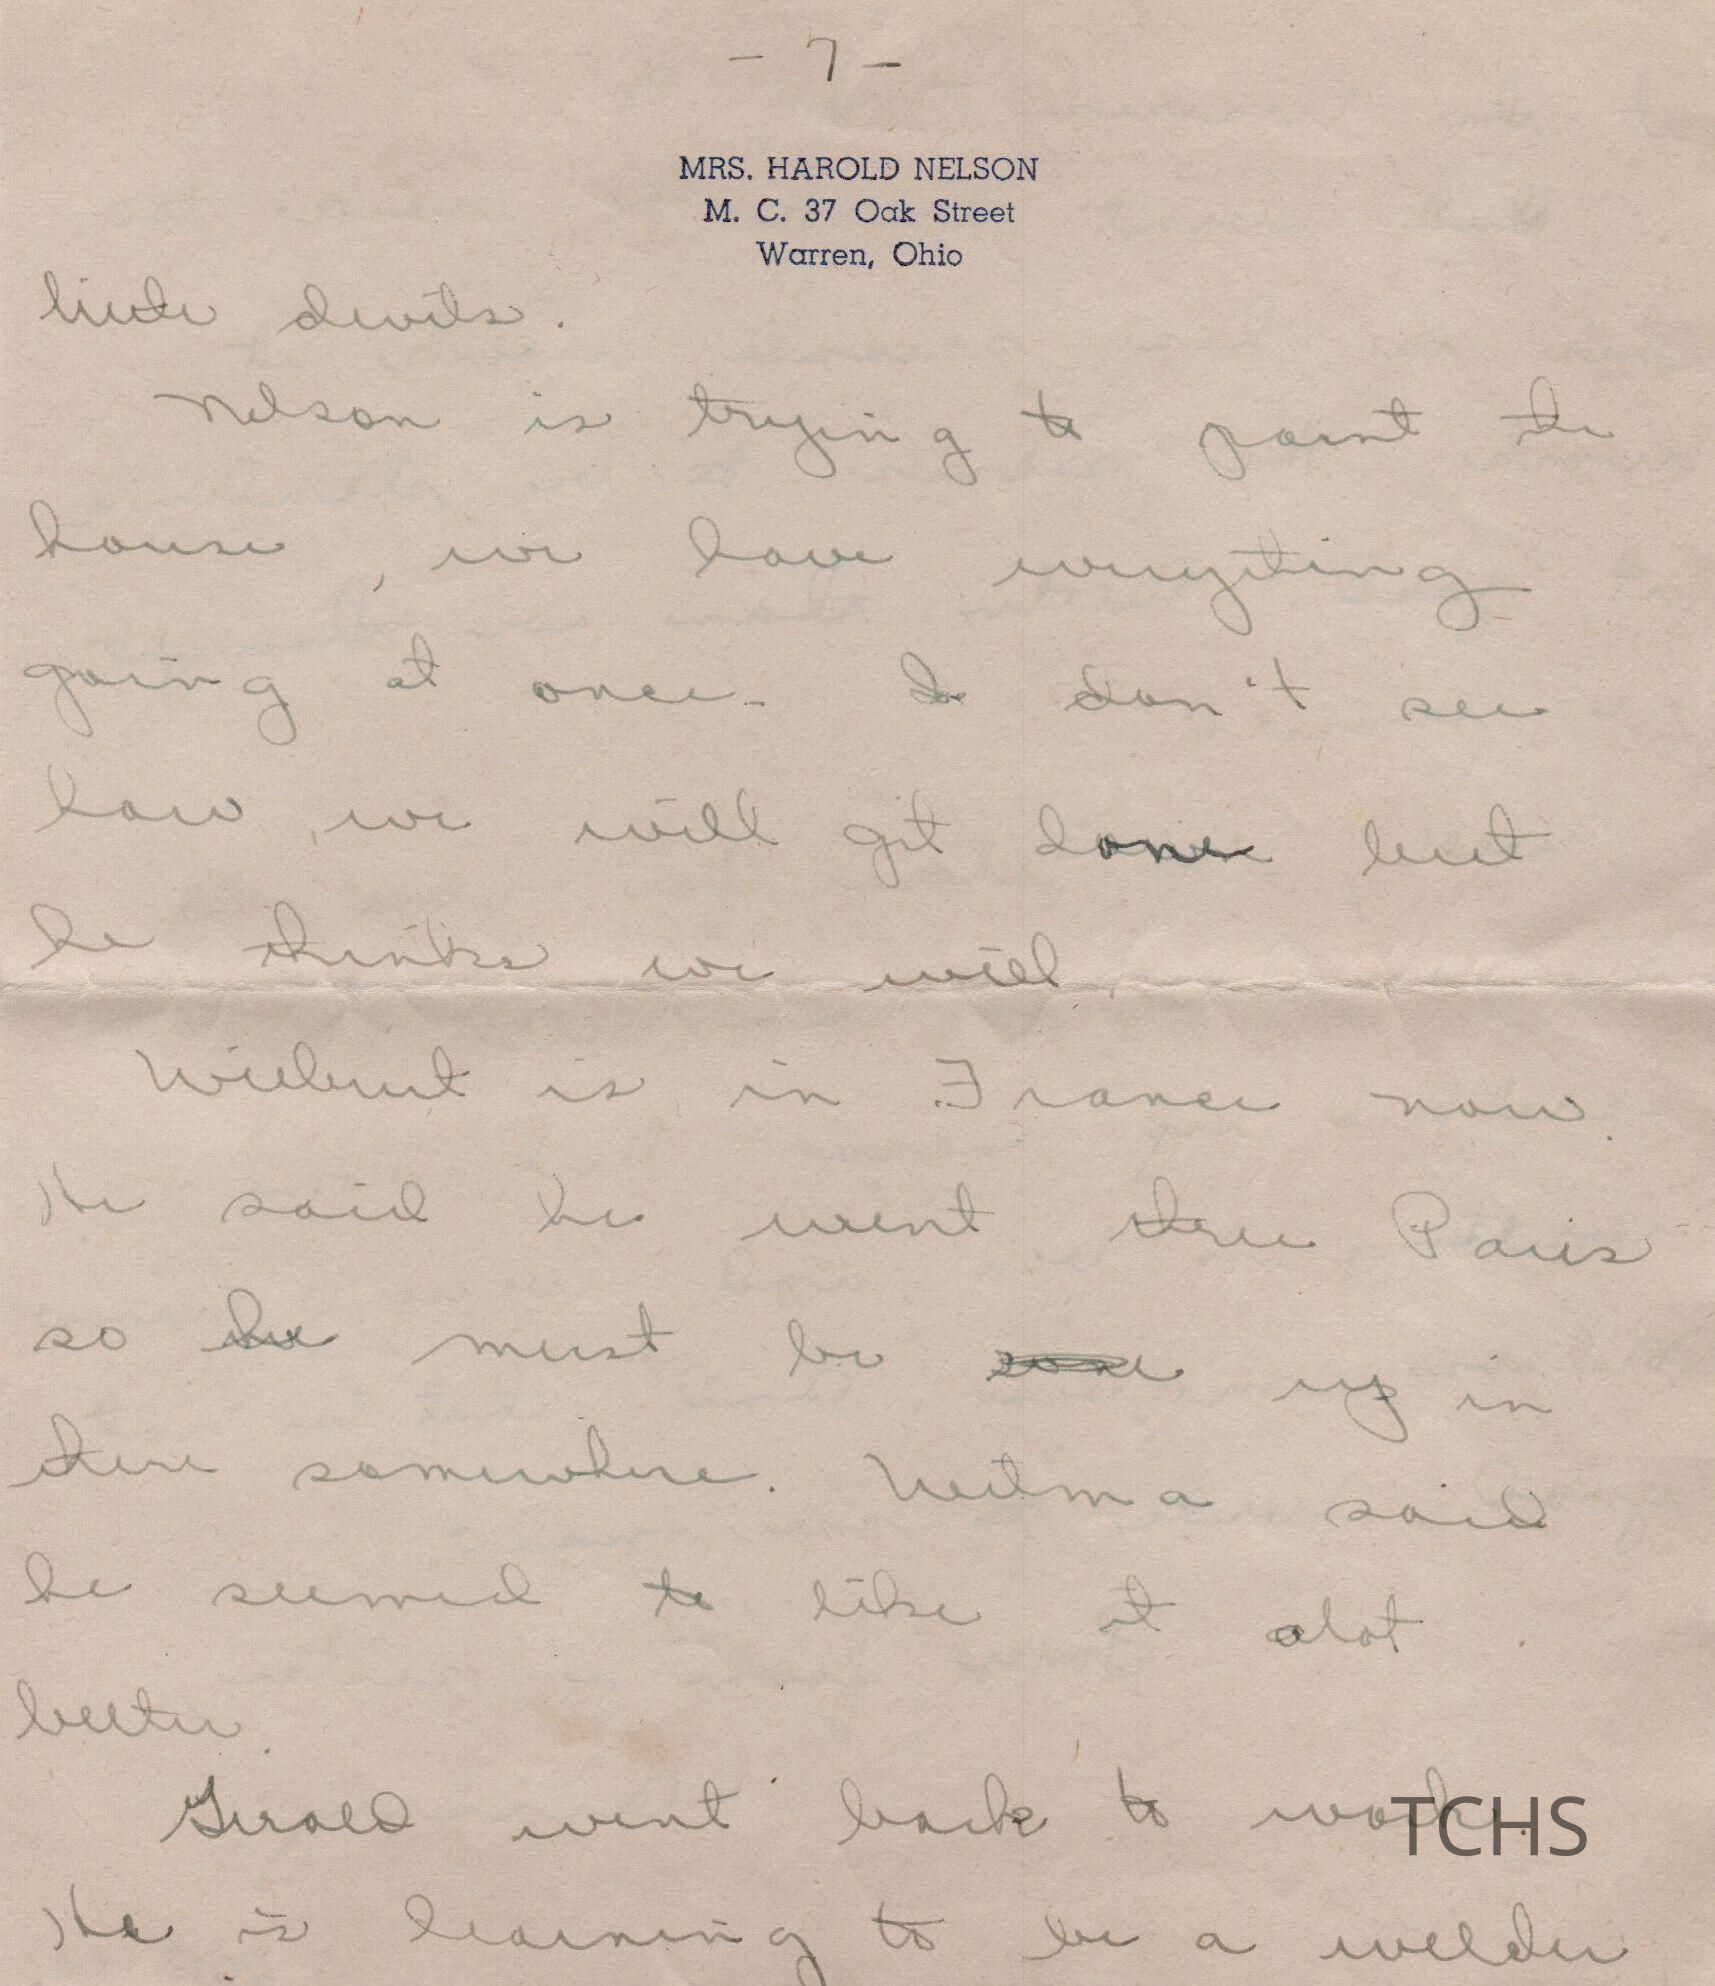 - 7 -
MRS. HAROLD NELSON
M. C. 37 Oak Street
Warren, Ohio
little devils.
Nelson is trying to paint the
house, we have everything
going at once. I don't see
how we will get done but
he thinks we will.
Wilbur is in France now.
He said he went thru Paris
so he must be up in
there somewhere. Wilma said
he seemed to like it alot
better.
Gerald went back to work.
He is learning to be a welder
TCHS